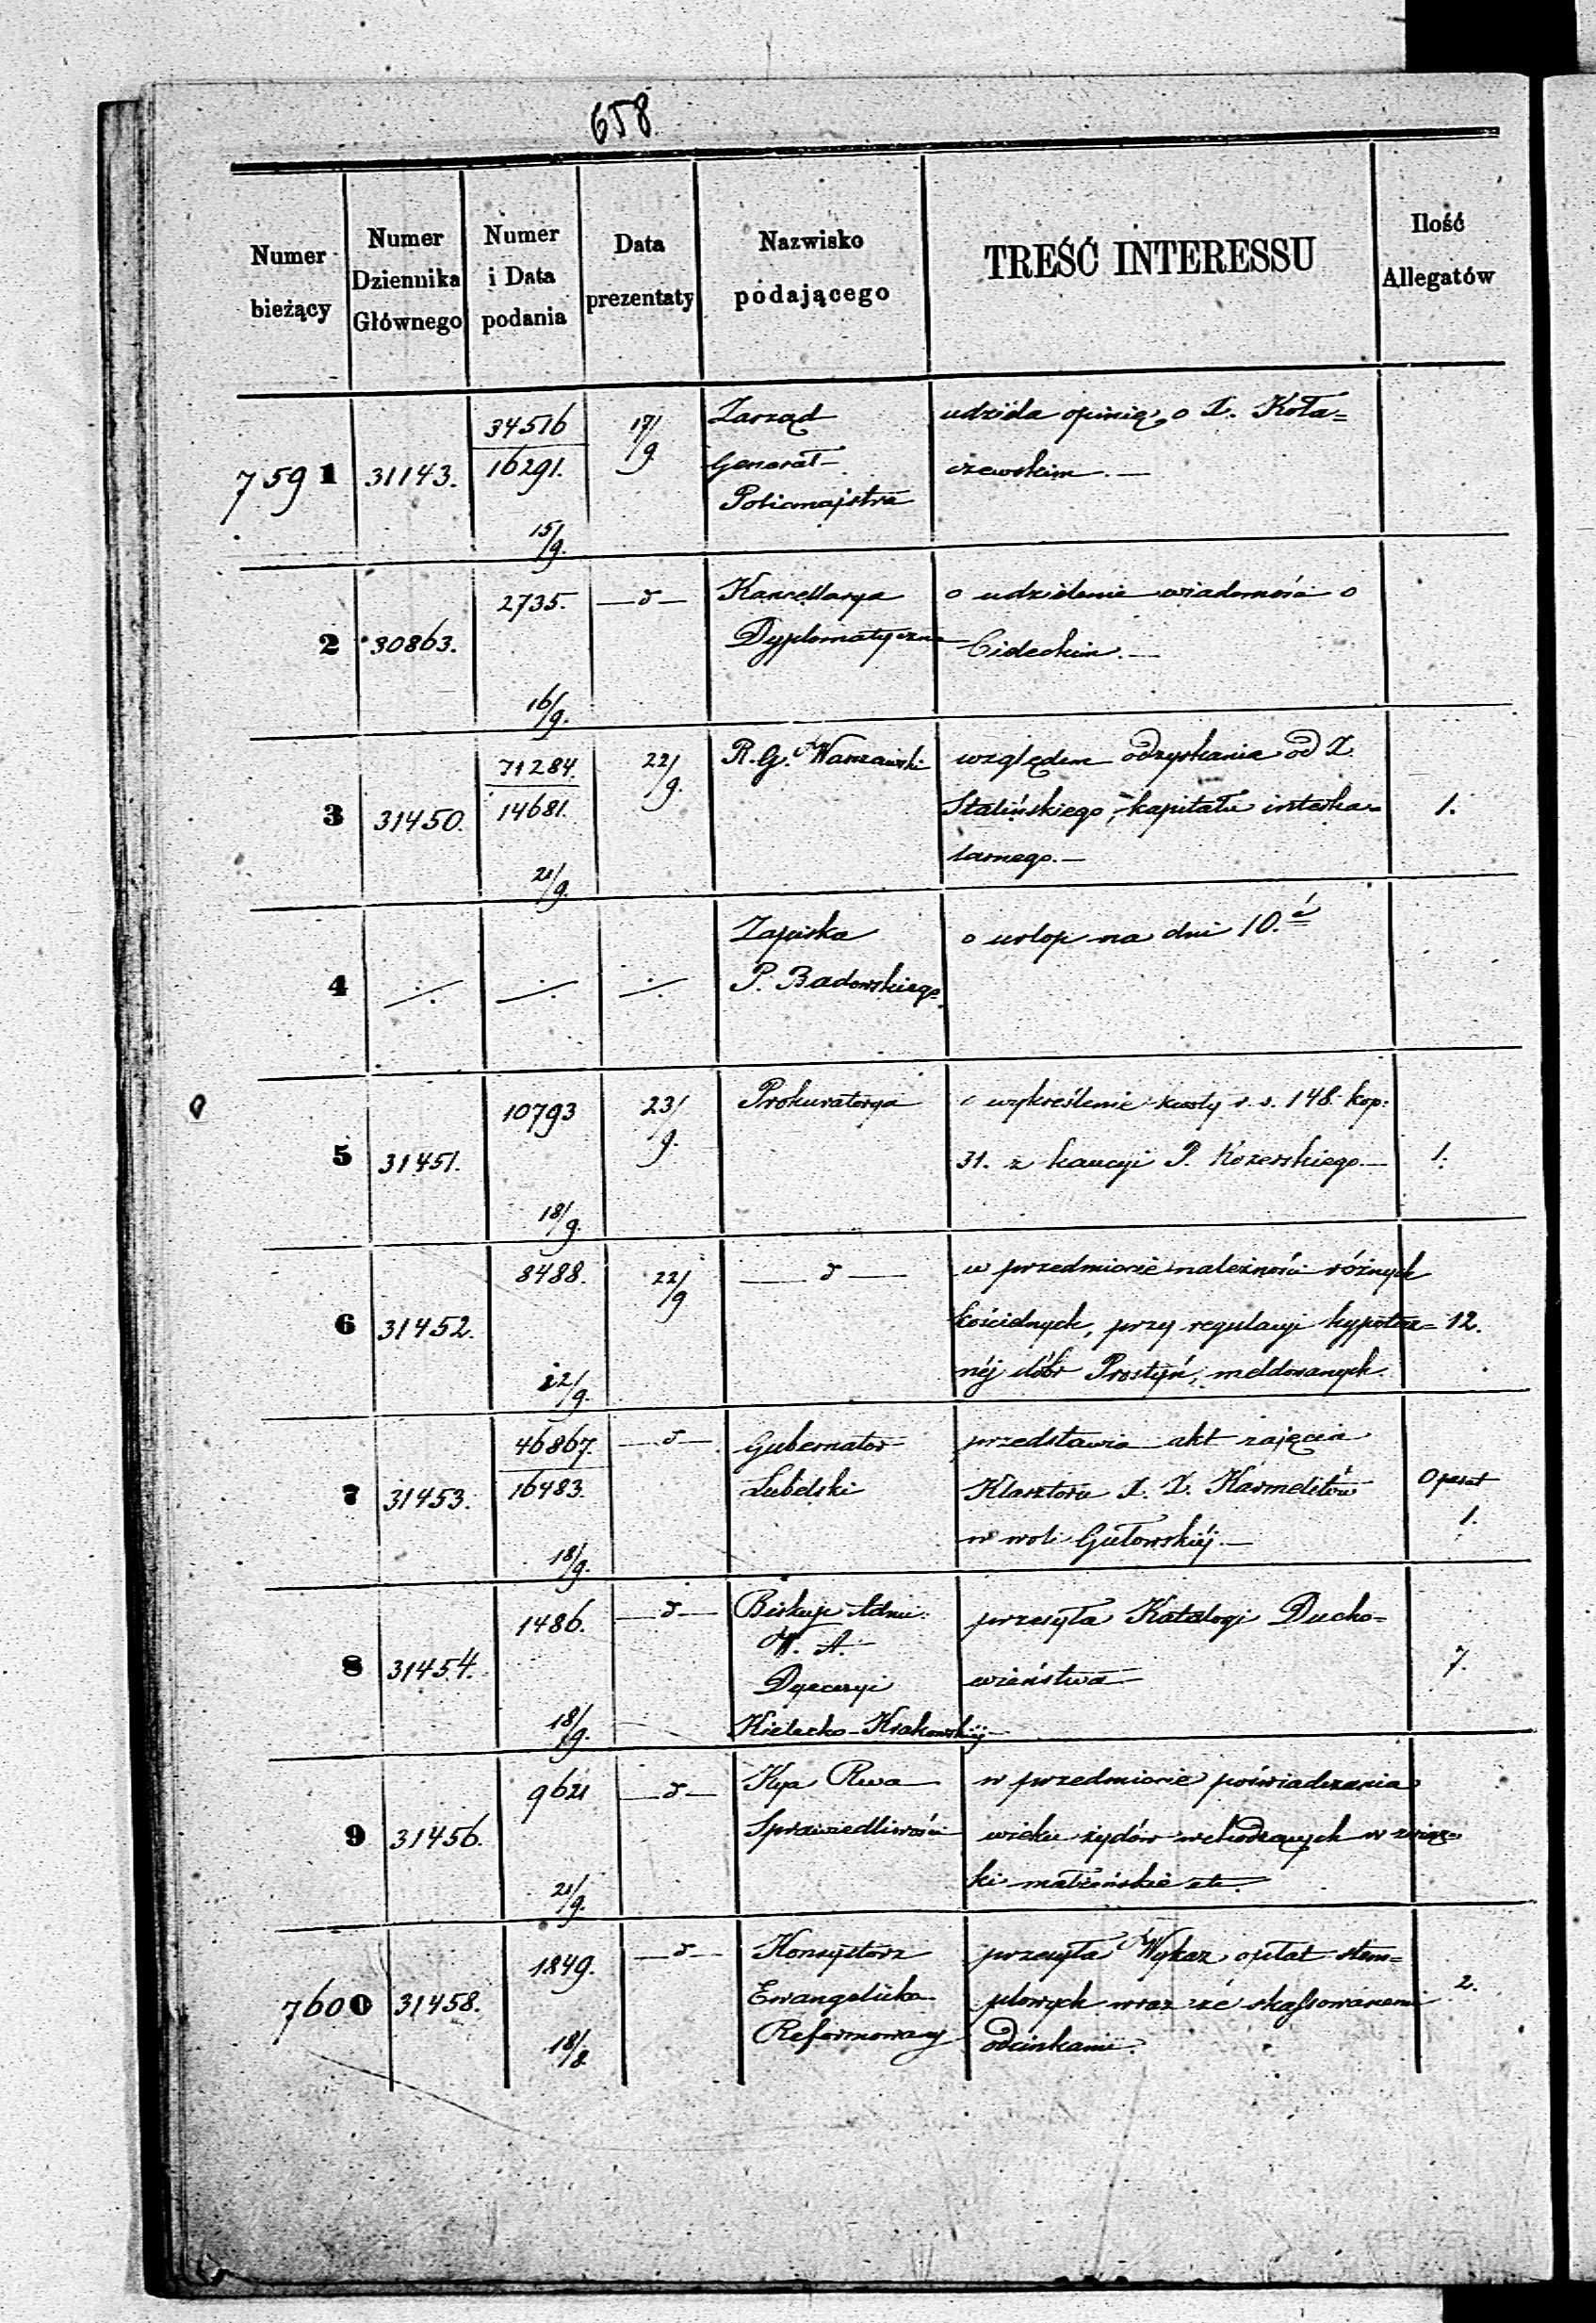 658
Numer bieżący
Numer Dziennika Głównego
Numer i Data podania
Data prezentaty
Nazwisko podającego
TREŚĆ INTERESSU
Ilość Allegatów
7591 31143. 34516 17/9 Zarząd udziela opinię o X. Koła=
16291. Generał- czewskim.—
15/9. Policmajstra
2 30863. 2735. —d— Kancellarya o udzielenie wiadomości o
16/9. Dyplomatyczna Cideckim.—
3 31450. 71284. 22/9. R. G. Warszawski względem odzyskania od X.
14681. Stalińskiego, kapitału interka= 1.
21/9. larnego.—
4 ·/. ·/. ·/. Zapiska o urlop na dni 10.
P. Badowskiego.
5 31451. 10793 23/9. Prokuratorya o wykreślenie kwoty r. s. 148. kop:
18/9. 31. z kaucyi P. Kozerskiego.— 1.
6 31452. 8488. 22/9 —d— w przedmiocie należności różnych
kościelnych, przy regulacyi hypotecz= 12.
22/9. néj dóbr Prostyń, meldowanych.
7 31453. 46867. —d— Gubernator przedstawia akt zajęcia
16483. Lubelski Klasztoru X. X. Karmelitów Operat
18/9. w woli Gułowskiéj.— 1.
8 31454. 1486. —d— Biskup Adm: przesyła Katalogi Ducho=
W. A.
Dyecezyi wieństwa— 7.
18/9. Kielecko-Krakowskiéj—
9 31456. 9621 —d— Kya Rwa w przedmiocie poświadczania
Sprawiedliwości wieku żydów wchodzących w związ=
21/9. ki małżeńskie etc.
7600 31458. 1849. —d— Konsystorz przesyła Wykaz opłat stem=
Ewangelicko plowych wraz ze skassowanemi 2.
18/8. Reformowany odcinkami.